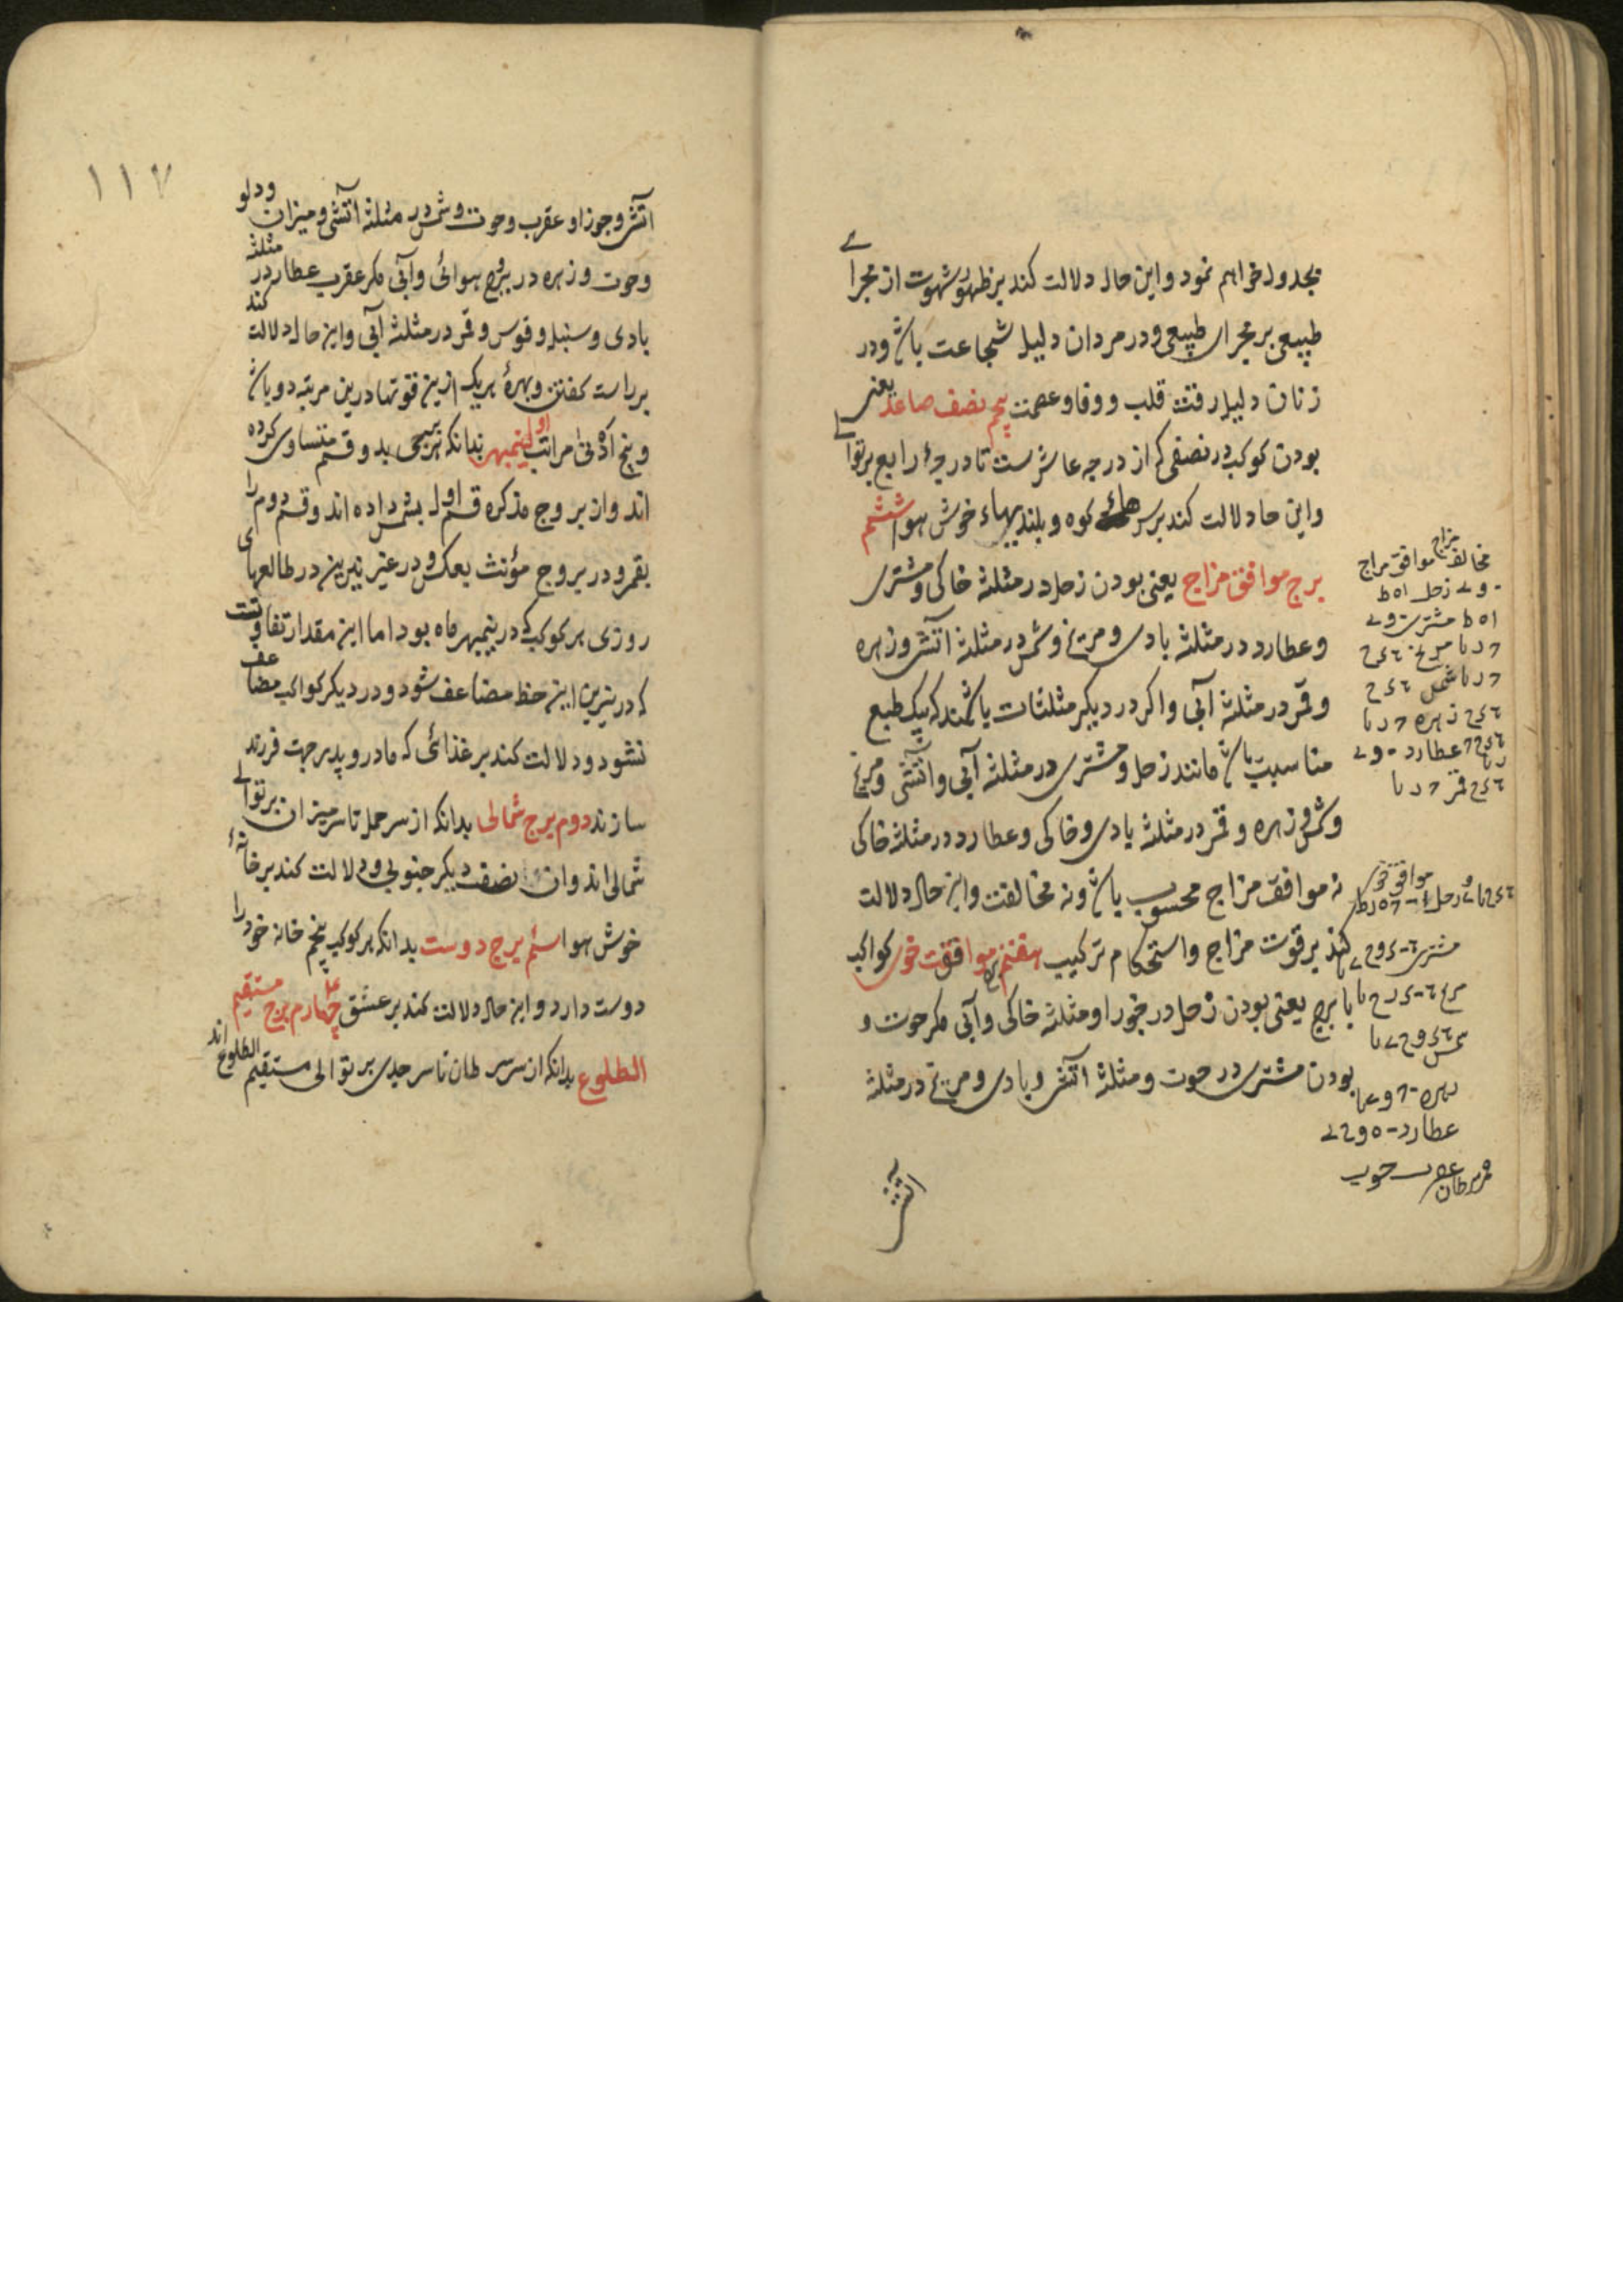 بجدول خواهم نمود واین حال دلالت کند بر ظهور شهوت از مجرای
طبیعی بر مجرای طبیعی ودر مردان دلیل شجاعت باش ودر
زنان دلیل رقت قلب ووفا وعصمت پنجم نصف صاعد یعنی
بودن کوکب در نصفی که از درجه عاشرست تا درجهٔ رابع بر توالی
واین حا دلالت کند بر سرهای کوه وبلندیهاء خوش هوا ششم
برج موافق مزاج یعنی بودن زحل در مثلثه خاکی ومشتری
وعطارد در مثلثه بادی ومریخ وشمس در مثلثه آتش وزهره
وقمر در مثلثه آبی واکر در دیکر مثلثات باشند که بیک طبع
مناسبت باش مانند زحل ومشتری در مثلثه آبی وآتشی ومریخ
وشمس وزهره وقمر در مثلثه بادی وخاکی وعطارد در مثلثه خاکی
نه موافق مزاج محسوب باش ونه مخالفت واین حال دلالت
کند بر قوت مزاج واستحکام ترکیب هفتم موافقت خوی کواکب
با برج یعنی بودن زحل در جوزا ومثلثه خاکی وآبی مکر حوت و
بودن مشتری در حوت ومثلثه آتش وبادی ومریخ در مثلثه
آتش
مخالف مزاج موافق مزاج
زحل
مشتری
مریخ
شمس
زهره
عطارد
قمر
موافق خوی
زحل
مشتری
مریخ
شمس
زهره
عطارد
قمر سرطان عقرب حوت
۱۱۷
آتش وجوزا وعقرب وحوت وشمس در مثلثه آتشی ومیزان ودلو
وحوت وزهره در بروج هوائی وآبی مکر عقرب عطارد در مثلثه
بادی وسنبله وقوس وقمر در مثلثه آبی واین حال دلالت کند
بر راست کفتن وبهرهٔ هریک ازین قوتها درین مرتبه دو باش
وپنج ادنی مراتب اول نیمبهر بدانکه هر برجی بدو قسم متساوی کرده
اند واز بروج مذکره قسم اول بشمس داده اند وقسم دوم را
بقمر ودر بروج مؤنث بعکس ودر غیر نیرین در طالعهای
روزی هر کوکب که در نیمبهر ماه بود اما این مقدار تفاوتست
که در نیرین این حظ مضاعف شود ودر دیکر کواکب مضاعف
نشود ودلالت کند بر غذائی که مادر وپدر جهت فرزند
سازند دوم برج شمالی بدانکه از سر حمل تا سر میزان بر توالی
شمالی اند وآن نصف دیکر جنوبی ودلالت کند بر خانهٔ
خوش هوا سئم برج دوست بدانکه هر کوکب پنجم خانه خود را
دوست دارد واین حال دلالت کند بر عشق چهارم برج مستقیم
الطلوع بدانکه از سر سرطان تا سر جدی بر توالی مستقیم الطلوع اند